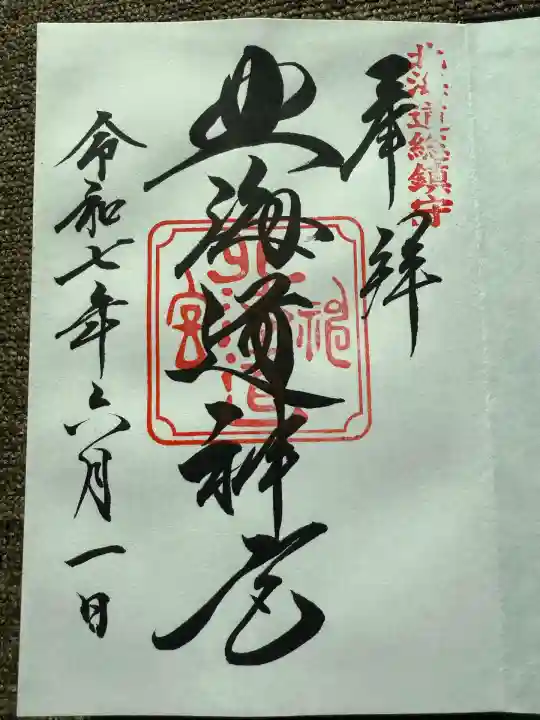 北海道総鎮守
奉拝
北海道神宮
令和七年六月一日
北海道
神
宮